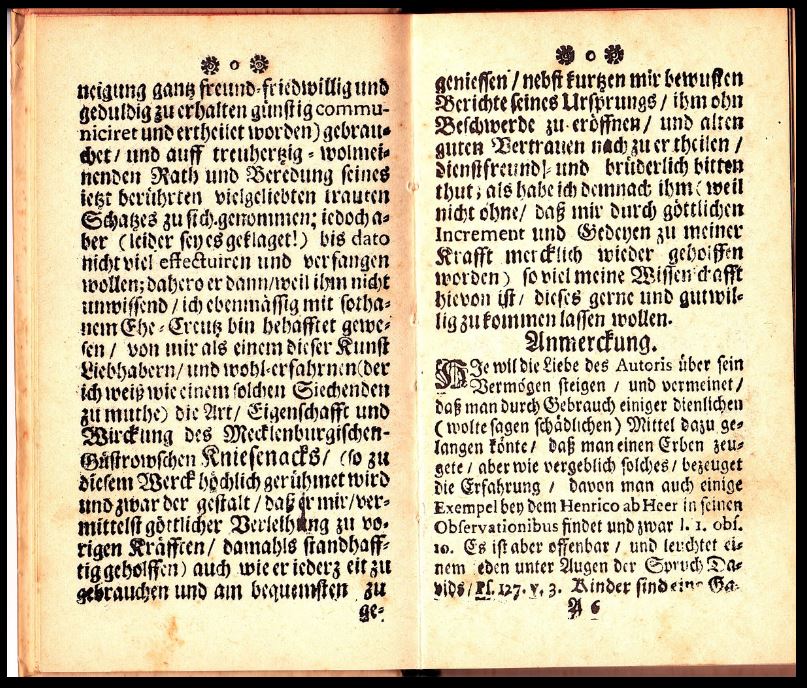 neigung gantz freund-friedwillig und
geduldig zu erhalten günstig commu-
niciret und ertheilet worden) gebrau-
chet / und auff treuhertzig-wolmei-
nenden Rath und Beredung seines
ietzt berührten vielgeliebten trauten
Schatzes zu sich genommen; iedoch a-
ber (leider sey es geklaget!) bis dato
nicht viel effectuiren und verfangen
wollen; dahero er dann / weil ihm nicht
unwissend / ich ebenmässig mit sotha-
nem Ehe-Creutz bin behafftet gewe-
sen / von mir als einem dieser Kunst
Liebhabern / und wohl-erfahrnen (der
ich weiß wie einem solchen Siechenden
zu muthe) die Art / Eigenschafft und
Wirckung des Mecklenburgischen-
Güstrowschen Kniesenacks / (so zu
diesem Werck höchlich gerühmet wird
und zwar der gestalt / daß er mir / ver-
mittelst göttlicher Verleihung zu vo-
rigen Kräfften / damahls standhaff-
tig geholffen) auch wie er iederzeit zu
gebrauchen und am bequemsten zu
ge-
geniessen / nebst kurtzen mir bewusten
Berichte seines Ursprungs / ihm ohn
Beschwerde zu eröffnen / und alten
guten Vertrauen nach zu ertheilen /
dienstfreundl- und brüderlich bitten
thut; als habe ich demnach ihm (weil
nicht ohne / daß mir durch göttlichen
Increment und Gedeyen zu meiner
Krafft mercklich wieder geholffen
worden) so viel meine Wissenschafft
hievon ist / dieses gerne und gutwil-
lig zukommen lassen wollen.
Anmerckung.
HJe wil die Liebe des Autoris über sein
Vermögen steigen / und vermeinet /
daß man durch Gebrauch einiger dienlichen
(wolte sagen schädlichen) Mittel dazu ge-
langen könte / daß man einen Erben zeu-
gete / aber wie vergeblich solches / bezeuget
die Erfahrung / davon man auch einige
Exempel bey dem Henrico ab Heer in seinen
Observationibus findet und zwar l. 1. obs.
10. Es ist aber offenbar / und leuchtet ei-
nem jeden unter Augen der Spruch Da-
vids / Ps. 127. v. 3. Kinder sind eine Ga-
A 6